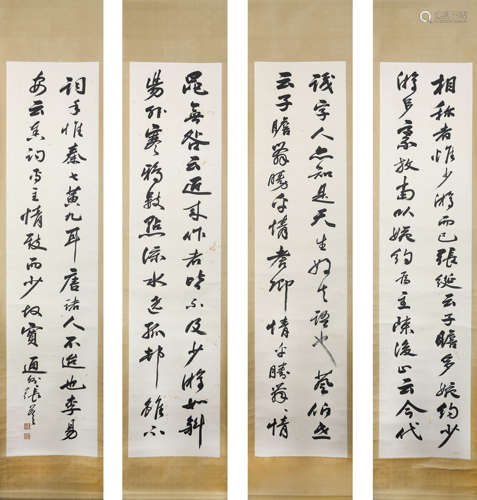 相称者惟少游而已張綖云子瞻多婉約少
游多豪放當以婉約為主陳後山云今代
識字人亦知是天生好言語也蔡伯世
云子瞻辭勝乎情耆卿情乎勝辭、情
晁無咎云近来作者皆不及少游如斜
陽外寒鴉數點流水遶孤邨雖不
詞手惟秦七黃九耳唐諸人不迨也李易
安云秦詞專主情致而少故實